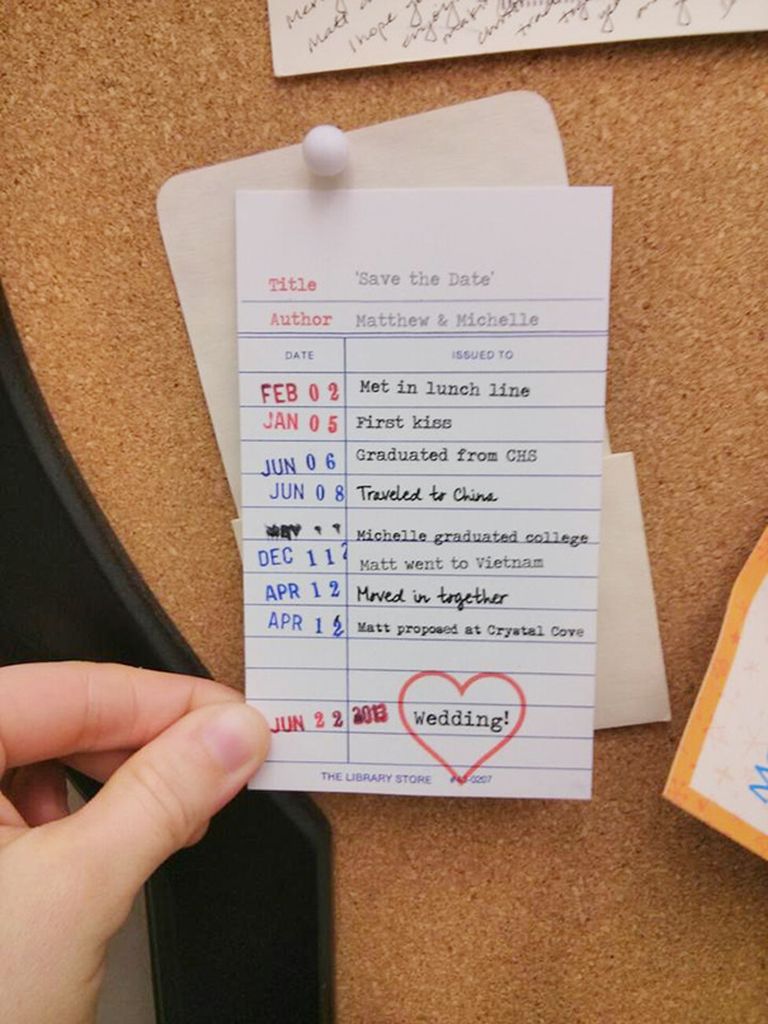 Matt
I hope
enjoy
Title 'Save the Date'
Author Matthew & Michelle
DATE ISSUED TO
FEB 02 Met in lunch line
JAN 05 First kiss
JUN 06 Graduated from CHS
JUN 08 Traveled to China
MAY Michelle graduated college
DEC 11 Matt went to Vietnam
APR 12 Moved in together
APR 12 Matt proposed at Crystal Cove
JUN 22 2013 Wedding!
THE LIBRARY STORE #43-0207